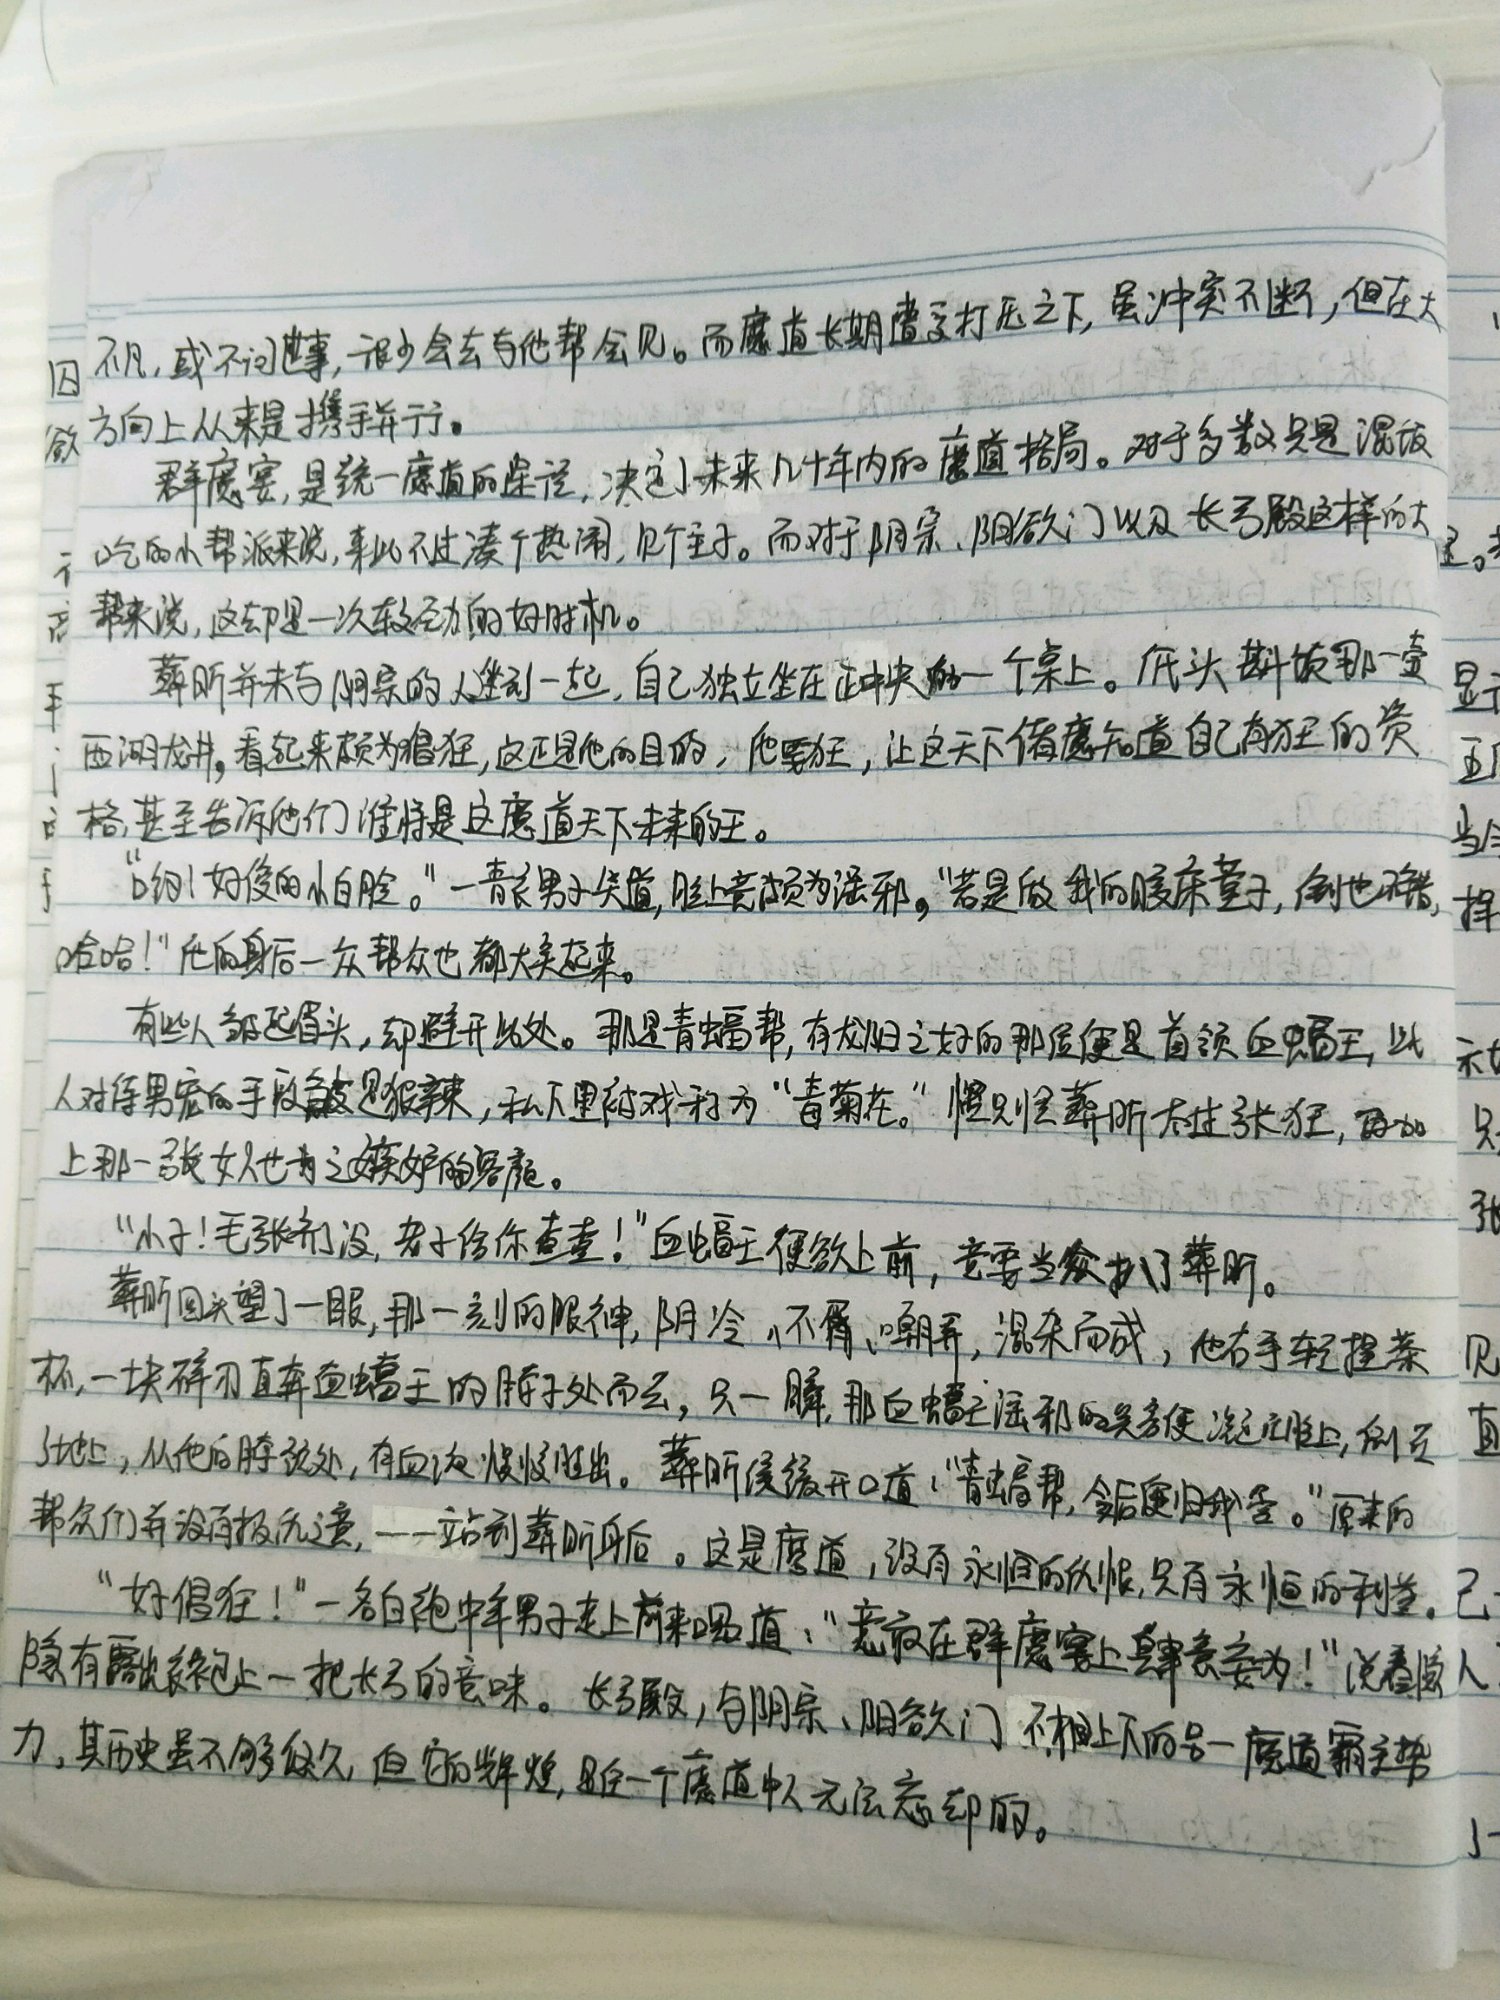 不凡，或不问世事，很少会去与他帮会见。而魔道长期遭受打压之下，虽冲突不断，但在大
方向上从来是携手并行。
群魔宴，是统一魔道的 ，决定了未来几十年内的魔道格局。对于多数只是混饭
吃的小帮派来说，来此不过凑个热闹，见个主子。而对于阴宗、阴欲门以及长弓殿这样的大
帮来说，这却是一次较劲的好时机。
葬昕并未与阴宗的人坐到一起，自己独立坐在正中央的一个桌上。低头斟饮那一壶
西湖龙井，看起来颇为猖狂，这正是他的目的，他要狂，让这天下诸魔知道自己有狂的资
格，甚至告诉他们谁将是这魔道天下未来的王。
“哟！好俊的小白脸。”一青衣男子笑道，脸上竟颇为淫邪，“若是做我的暖床童子，倒也不错，
哈哈！”他的身后一众帮众也都大笑起来。
有些人皱起眉头，却避开此处。那是青蝠帮，有龙阳之好的那位便是首领血蝠王，此
人对待男宠的手段 是狠辣，私下里被戏称为“青菊花。”怪只怪葬昕太过张狂，再加
上那一张女人也为之嫉妒的容颜。
“小子！毛张齐了没，老子给你查查！”血蝠王便欲上前，竟要当众扒了葬昕。
葬昕回头望了一眼，那一刻的眼神，阴冷、不屑、嘲弄，混杂而成，他右手轻捏茶
杯，一块碎刃直奔血蝠王的脖子处而去，只一瞬，那血蝠王淫邪的笑容便凝在脸上，倒在
了地上，从他的脖颈处，有血液慢慢胜出。葬昕缓缓开口道：“青蝠帮，今后便归我管。”原来的
帮众们并没有报仇之意，一一站到葬昕身后。这是魔道，没有永恒的仇恨，只有永恒的利益。
“好猖狂！”一名白袍中年男子走上前来喝道：“竟敢在群魔宴上肆意妄为！”说着隐
隐有露出衣袍上一把长弓的意味。长弓殿，与阴宗、阴欲门不相上下的另一魔道霸主势
力，其历史虽不够悠久，但它的辉煌，是任一个魔道中人无法忘却的。